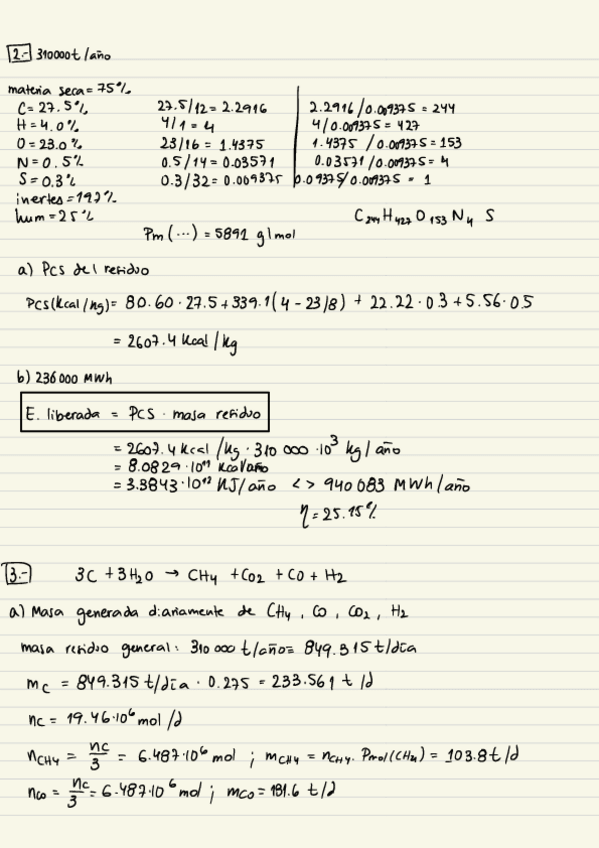 2.- 310000t/año
materia seca = 75%
C = 27.5% 27.5/12 = 2.2916 2.2916/0.009375 = 244
H = 4.0% 4/1 = 4 4/0.009375 = 427
O = 23.0% 23/16 = 1.4375 1.4375/0.009375 = 153
N = 0.5% 0.5/14 = 0.03571 0.03571/0.009375 = 4
S = 0.3% 0.3/32 = 0.009375 0.09375/0.009375 = 1
inertes = 19.7%
hum = 25% C244H427O153N4 S
Pm (...) = 5891 g/mol
a) PCS del residuo
PCS(Kcal/kg) = 80.60 · 27.5 + 339.1(4 - 23/8) + 22.22 · 0.3 + 5.56 · 0.5
= 2607.4 Kcal/kg
b) 236000 MWh
E. liberada = PCS · masa residuo
= 2607.4 Kcal/kg · 310 000 · 10³ kg/año
= 8.0829 · 10¹¹ Kcal/año
= 3.3843 · 10¹² KJ/año <> 940 083 MWh/año
η = 25.15%
3.- 3C + 3H2O → CH4 + CO2 + CO + H2
a) Masa generada diariamente de CH4, CO, CO2, H2
masa residuo general: 310 000 t/año = 849.315 t/día
mC = 849.315 t/día · 0.275 = 233.561 t/d
nC = 19.46·10⁶ mol/d
nCH4 = nC/3 = 6.487·10⁶ mol ; mCH4 = nCH4 · Pmol(CH4) = 103.8 t/d
nCO = nC/3 = 6.487·10⁶ mol ; mCO = 181.6 t/d